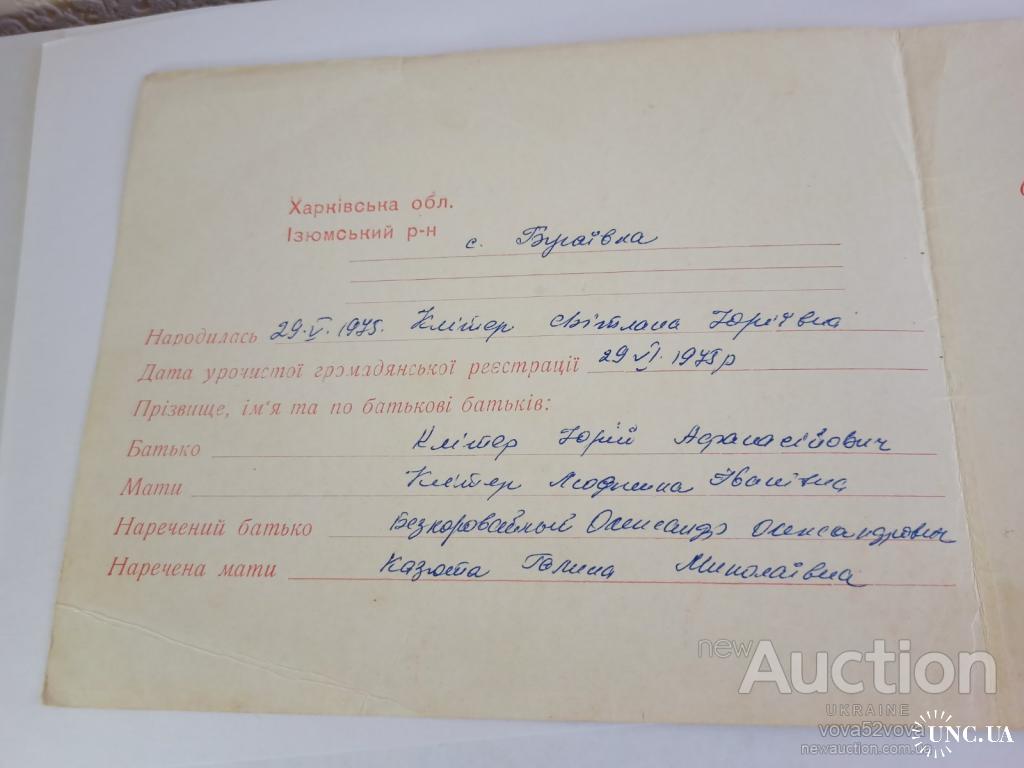 Харківська обл.
Ізюмський р-н с. Бугаївка
Народилась 29.V.1975. Клітер Світлана Юріївна
Дата урочистої громадянської реєстрації 29 VI. 1975р
Прізвище, ім'я та по батькові батьків:
Батько Клітер Юрій Афанасійович
Мати Клітер Людмила Іванівна
Наречений батько Безкоровайный Олександр Олександрович
Наречена мати Казюта Галина Миколаївна
new Auction
UKRAINE
vova52vova
newauction.com.ua
UNC.UA